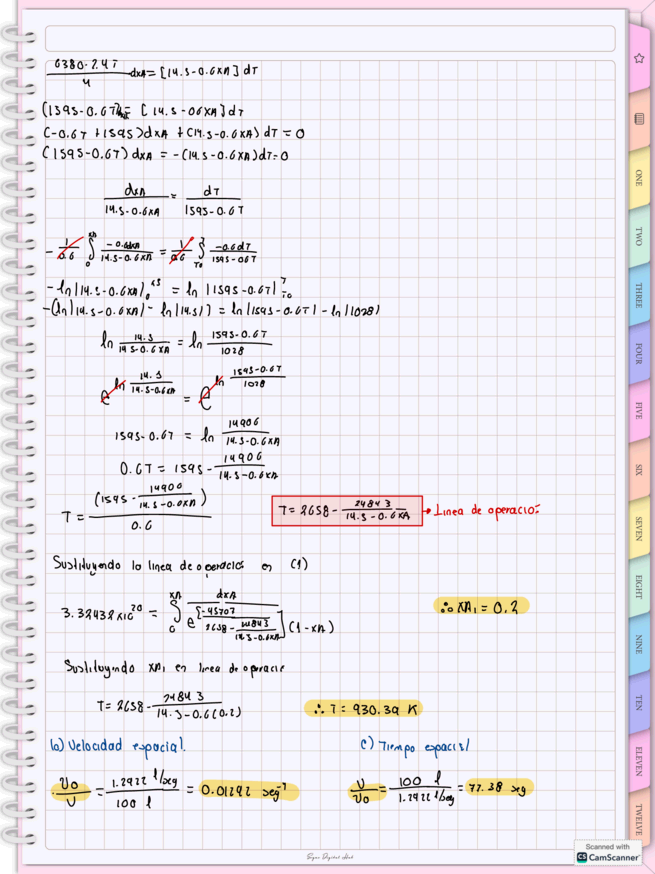 6380-2.4T/4 dxA = [14.5-0.6xA] dT
(1595-0.6T) = [14.5-06xA]dT
(-0.6T+1595)dxA + (14.5-0.6xA) dT = 0
(1595-0.6T) dxA = -(14.5-0.6xA)dT=0
dxA/14.5-0.6xA = dT/1595-0.6T
-1/0.6 ∫0^xA -0.6dxA/14.5-0.6xA = 1/0.6 ∫To^T -0.6dT/1595-06T
-ln|14.5-0.6xA|0 = ln|1595-0.6T|To^T
-(ln|14.5-0.6xA|- ln|14.5|] = ln|1595-0.6T| - ln|1028)
ln 14.5/14.5-0.6xA = ln 1595-0.6T/1028
e^ln 14.5/14.5-0.6xA = e^ln 1595-0.6T/1028
1595-0.6T = ln 14906/14.5-0.6xA
0.6T = 1595- 14906/14.5-0.6xA
T = (1595 - 14906/14.5-0.6xA)/0.6
T = 2658 - 24843/14.5-0.6xA → Linea de operacio:
Sustituyendo la linea de operacio en (1)
3.32432x10^20 = ∫0^xA dxA/e^[-45707/2658-24843/14.5-0.6xA](1-xA)
∴ XA1 = 0.2
Sustituyendo XA1 en linea de operacio
T = 2658- 24843/14.5-0.6(0.2)
∴ T = 930.39 K
b) Velocidad espacial.
c) Tiempo espacial
υo/V = 1.2922 l/seg/100 l = 0.01292 seg⁻¹
V/υo = 100 l/1.2922 l/seg = 77.38 seg
ONE
TWO
THREE
FOUR
FIVE
SIX
SEVEN
EIGHT
NINE
TEN
ELEVEN
TWELVE
Scanned with
CS CamScanner